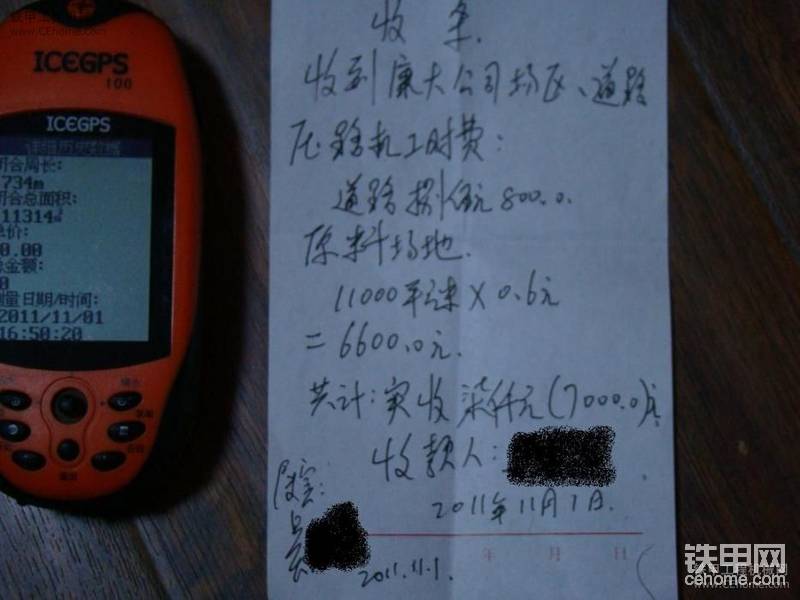 铁甲工程机械网
www.CEhome.com
ICEGPS
100
ICEGPS
闭合周长:
734m
闭合总面积:
11314㎡
单价:
0.00
总金额:
0
测量日期/时间:
2011/11/01
16:50:20
收条.
收到廉大公司场区、道路
压路机工时费:
道路捌佰元 800.0.
原料场地.
11000平米 X 0.6元
= 6600.0元.
共计:实收柒仟元(7000.0)元
收款人:
2011年11月1日.
2011.11.1.
年 月 日
铁甲网
cehome.com